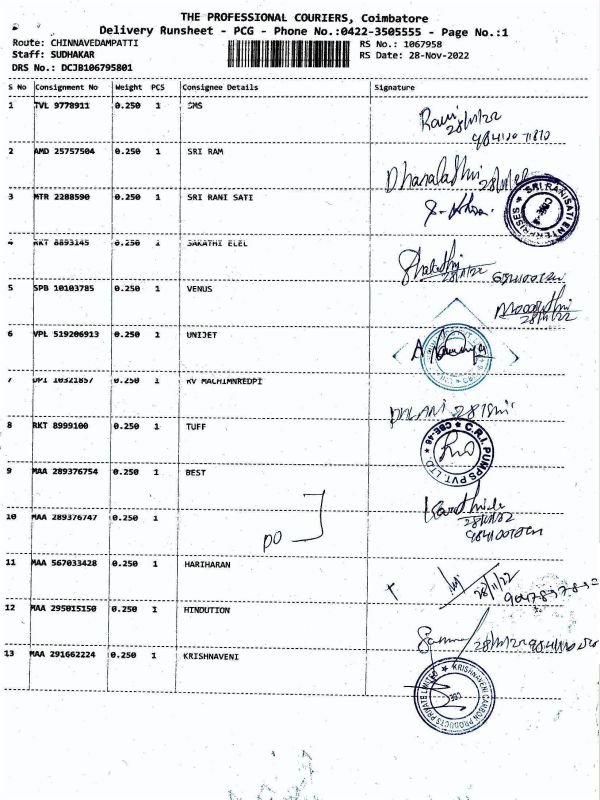 THE PROFESSIONAL COURIERS, Coimbatore
Delivery Runsheet - PCG - Phone No.:0422-3505555 - Page No.:1
Route: CHINNAVEDAMPATTI RS No.: 1067958
Staff: SUDHAKAR RS Date: 28-Nov-2022
DRS No.: DCJB106795801
S No Consignment No Weight PCS Consignee Details Signature
1 TVL 9778911 0.250 1 SMS
28/11/22
2 AMD 25757504 0.250 1 SRI RAM
3 MTR 2288590 0.250 1 SRI RANI SATI
SRI RANISATI ENTERPRISES
4 RKT 8893145 0.250 1 SAKATHI ELEL
28/11/22
5 SPB 10103785 0.250 1 VENUS
28/11/22
6 VPL 519206913 0.250 1 UNIJET
7 DPI 10321857 0.250 1 KV MACHIMNREDPI
8 RKT 8999100 0.250 1 TUFF
C.R.I. PUMPS PVT. LTD. CBE-46
9 MAA 289376754 0.250 1 BEST
10 MAA 289376747 0.250 1
DO
28/11/22
11 MAA 567033428 0.250 1 HARIHARAN
28/11/22
12 MAA 295015150 0.250 1 HINDUTION
13 MAA 291662224 0.250 1 KRISHNAVENI
KRISHNAVENI CARBON PRODUCTS PRIVATE LIMITED